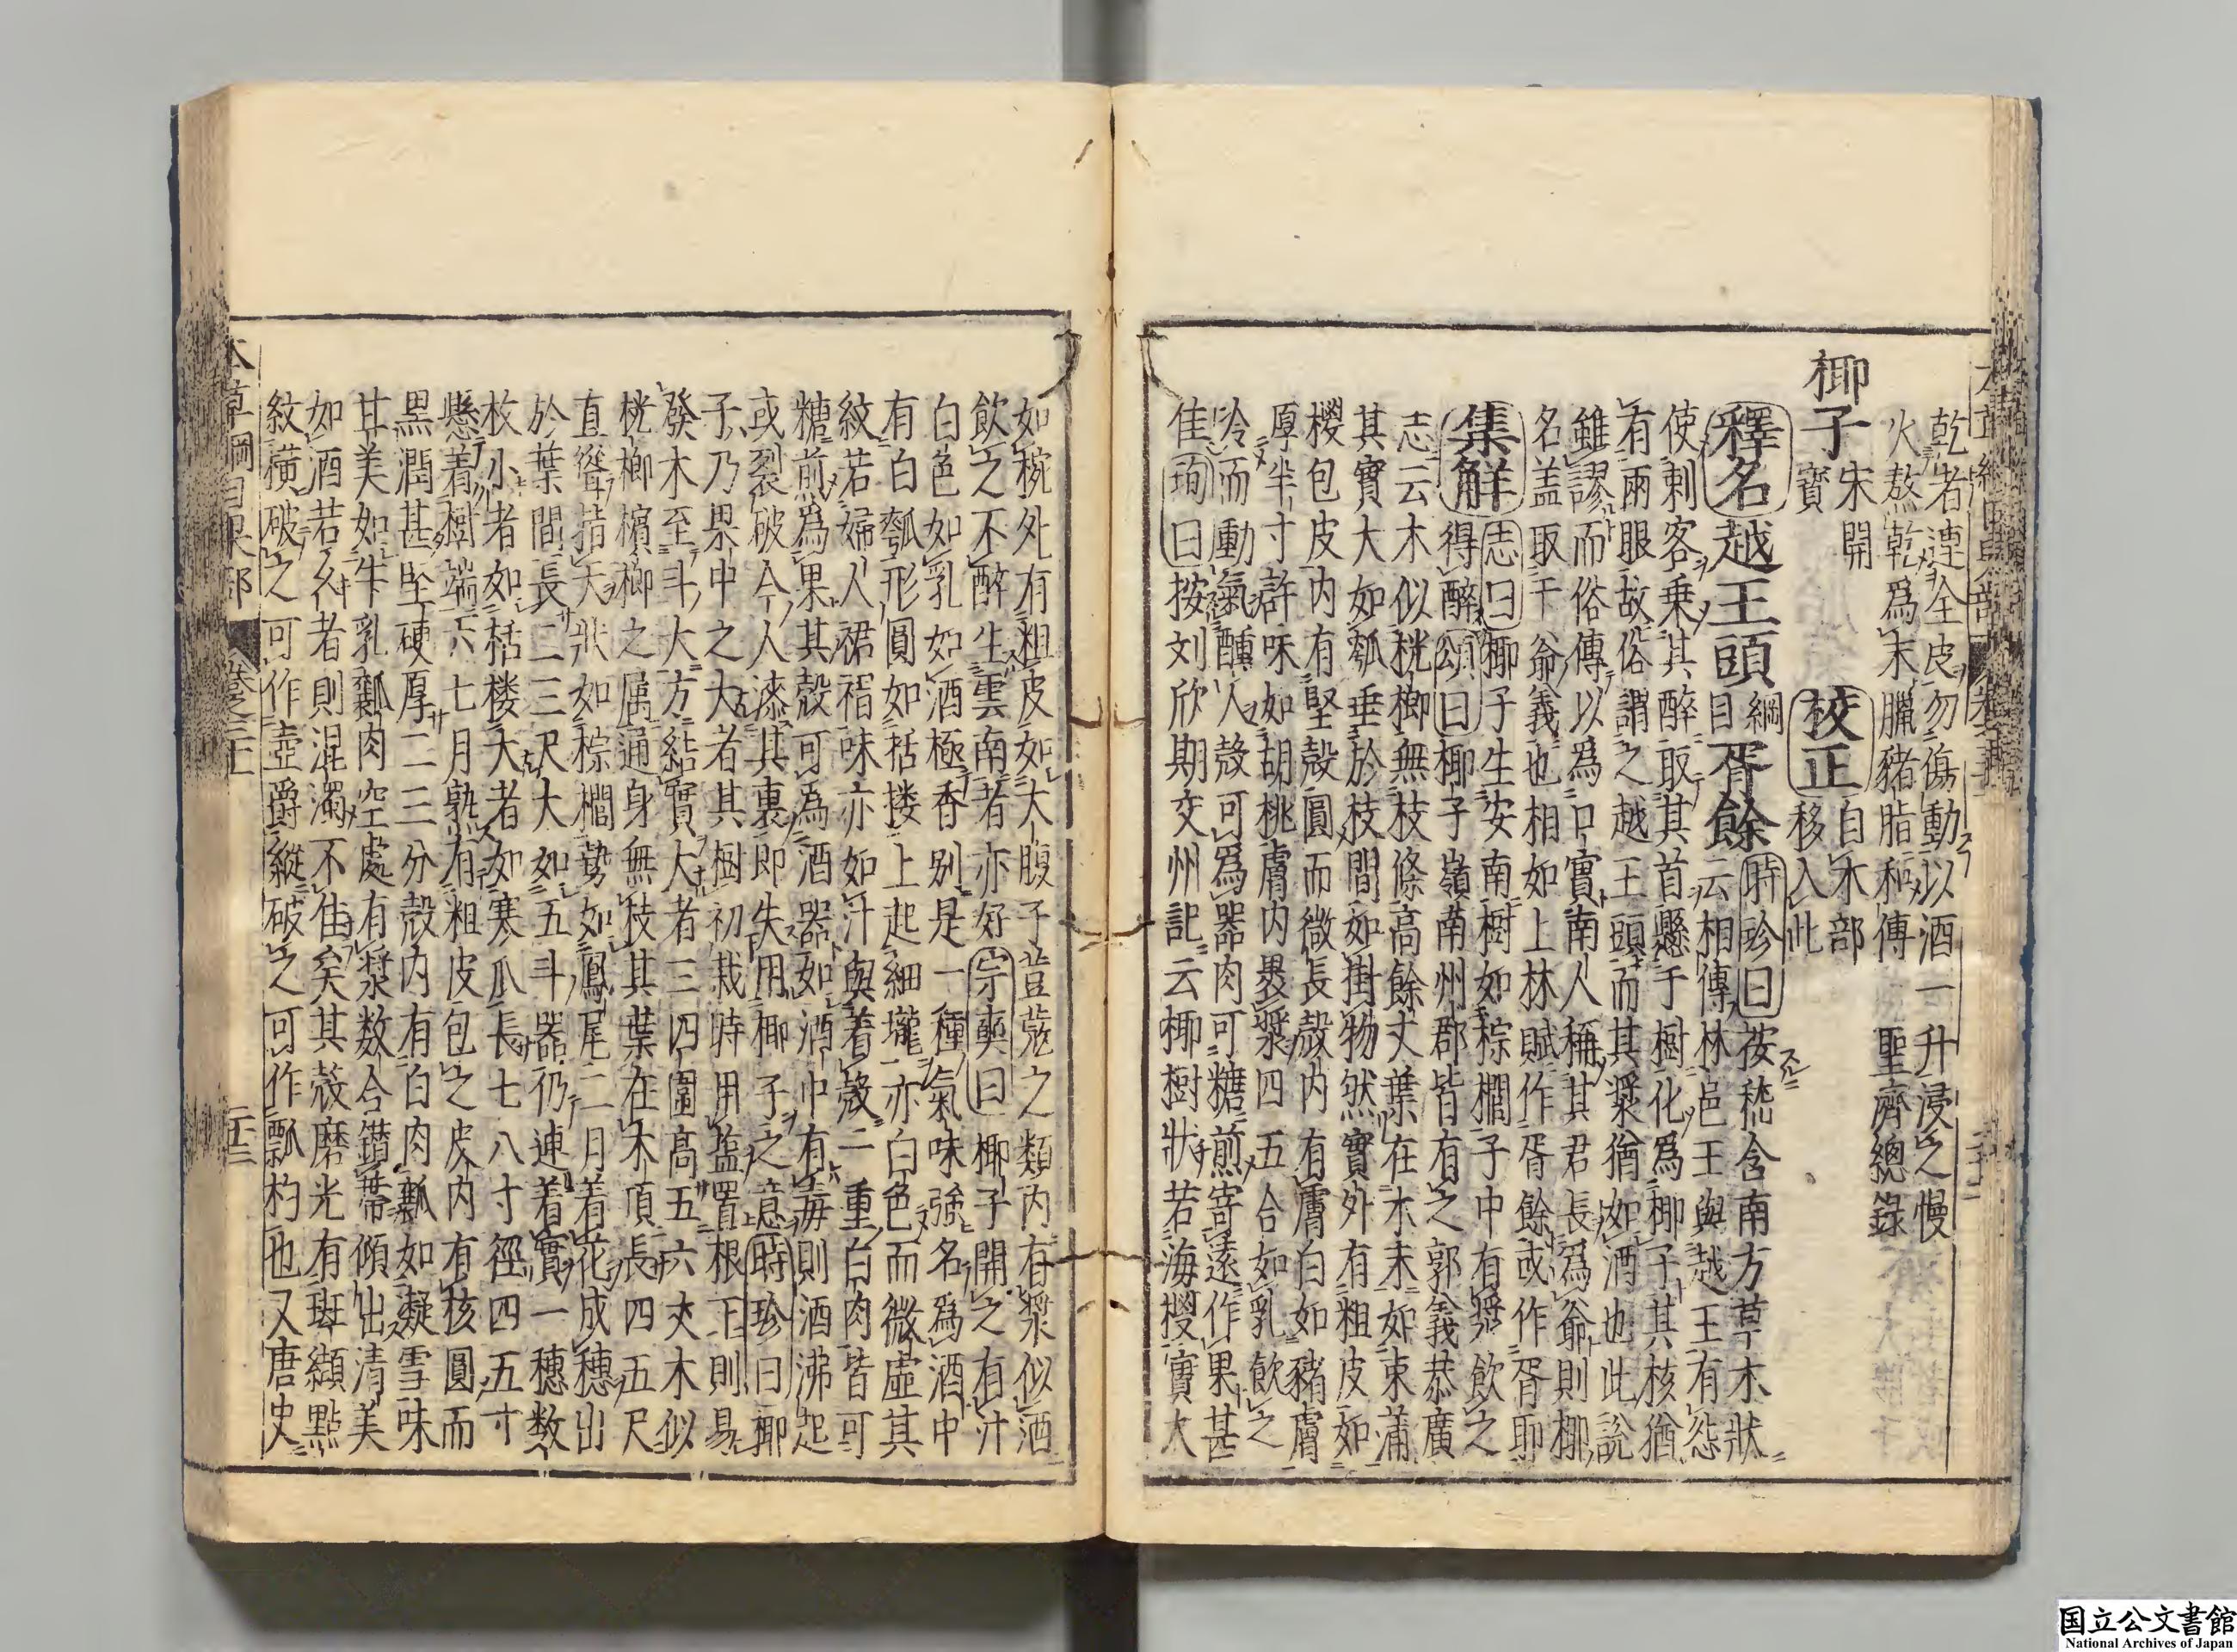 乾者連全皮勿傷動以酒一升浸之慢
火熬乾爲末臘豬脂和傅 聖濟總錄
椰子 宋開寶 校正 自木部移入此
釋名 越王頭 綱目 胥餘 時珍曰 按嵇含南方草木狀
云相傳林邑王與越王有怨
使刺客乗其醉取其首懸于樹化爲椰子其核猶
有兩眼故俗謂之越王頭而其漿猶如酒也此說
雖謬而俗傳以爲口實南人稱其君長爲爺則椰
名盖取于爺義也相如上林賦作胥餘或作胥耶
集解 志曰 椰子生安南樹如棕櫚子中有漿飲之
得醉 頌曰 椰子嶺南州郡皆有之郭義恭廣
志云木似桄榔無枝條高餘丈葉在木末如束蒲
其實大如瓠垂於枝間如掛物然實外有粗皮如
椶包皮内有堅殼圓而微長殼内有膚白如豬膚
厚半寸許味如胡桃膚内裹漿四五合如乳飲之
冷而動氣醺人殼可爲器肉可糖煎寄遠作果甚
佳 珣曰 按刘欣期交州記云椰樹狀若海椶實大
如椀外有粗皮如大腹子荳蔲之類内有漿似酒
飲之不醉生雲南者亦好 宗奭曰 椰子開之有汁
白色如乳如酒極香别是一種氣味強名爲酒中
有白瓠形圓如栝楼上起細壠亦白色而微虛其
紋若婦人裙褶味亦如汁與着殼一重白肉皆可
糖煎爲果其殼可為酒器如酒中有毒則酒沸起
或裂破今人漆其裏即失用椰子之意 時珍曰 椰
子乃果中之大者其樹初栽時用盐置根下則易
發木至斗大方結實大者三四圍高五六丈木似
桄榔檳榔之属通身無枝其葉在木頂長四五尺
直聳指天狀如棕櫚勢如鳳尾二月着花成穗出
於葉間長二三尺大如五斗器仍連着實一穗数
枚小者如栝楼大者如寒瓜長七八寸徑四五寸
懸着樹端六七月熟有粗皮包之皮内有核圓而
黒潤甚坚硬厚二三分殼内有白肉瓤如凝雪味
甘美如牛乳瓤肉空處有漿数合鑽蒂傾出清美
如酒若久者則混濁不佳矣其殼磨光有斑纈點
紋横破之可作壺爵縱破之可作瓢杓也又唐史
本草綱目果部 卷之三十一 二十三
国立公文書館
National Archives of Japan